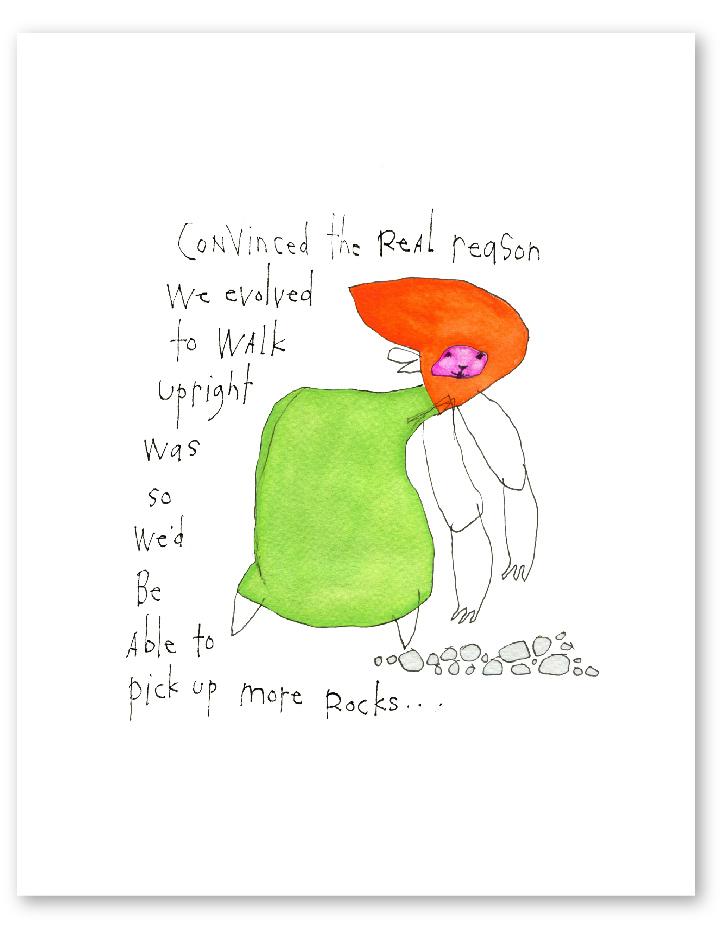 Convinced the Real reason
We evolved
to Walk
upright
Was
so
We'd
Be
Able to
pick up more Rocks...